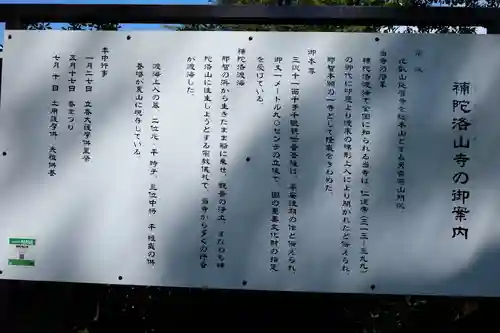 補陀洛山寺の御案内
宗派
比叡山延暦寺を総本山とする天台宗山門派
当寺の沿革
補陀洛渡海で全国に知られる当寺は、仁徳帝(三一三―三九九)
の御代に印度より渡来の裸形上人により開かれたと伝えられ、
那智本願の一寺として隆盛をきわめた。
御本尊
三貌十一面千手千眼観世音菩薩は、平安後期の作と伝えられ、
御丈一メートル九〇センチの立像で、国の重要文化財の指定
を受けている。
補陀洛渡海
那智の浜から生きたまま船に乗せ、観音の浄土、すなわち補
陀洛山に往生しようとする宗教儀礼で、当寺から多くの行者
が渡海した。
渡海上人の墓、二位の尼、平時子、三位中将、平維盛の供
養塔が裏山に現存している。
年中行事
一月二十七日 立春大護摩供星祭
五月十七日 春まつり
七月十日 土用護摩供、先祖供養